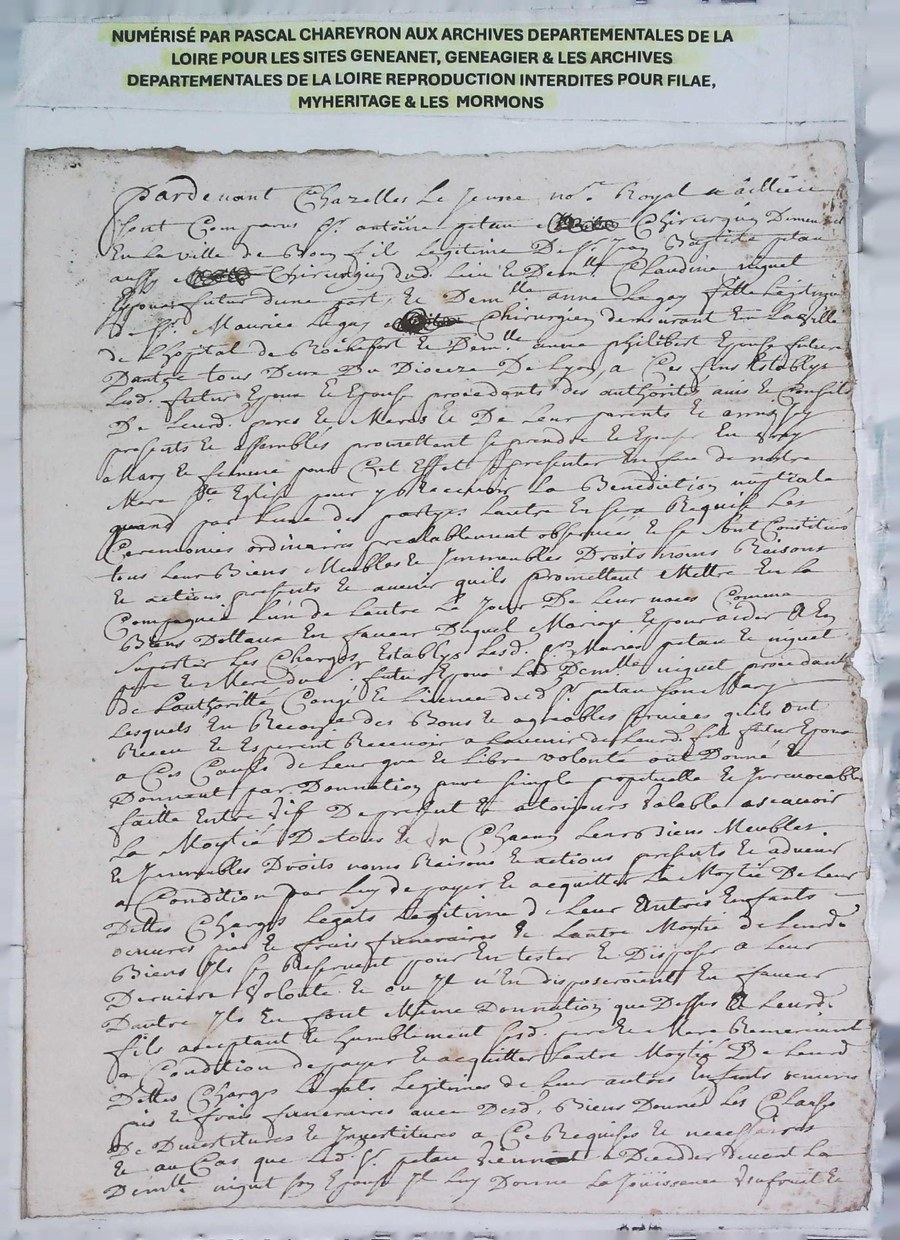 NUMÉRISÉ PAR PASCAL CHAREYRON AUX ARCHIVES DEPARTEMENTALES DE LA
LOIRE POUR LES SITES GENEANET, GENEAGIER & LES ARCHIVES
DEPARTEMENTALES DE LA LOIRE REPRODUCTION INTERDITES POUR FILAE,
MYHERITAGE & LES MORMONS
Pardevant Chazelles Le Jeune no.re Royal
sont Comparus Sr. antoine petau Chirurgien Demeurant
En La ville de fils Legitime De Sr. Jean Baptiste petau
aussy Chirurgien dud. Lieu & Demlle Claudine niguet
Epoux futur dune part, & Demlle anne Legay fille Legitime
a Sr. Maurice Legay Chirurgien demeurant En La ville
de Lhopital de Rochefort & Demlle anne philibert Epouse future
Dautre tous Deux Du Dioceze De Lyon, a Ces fins Establys
Lesd. futurs Epoux & Epouse procedants des authorités avis & Conseils
De Leurd. peres & Meres & De Leur parents & amys Icy
presents & assemblés promettent se prendre & Epouser En vray
Mary & femme pour Cet Effet se presenter En face de nostre
Mere Ste Eglise pour y Recevoir La Benediction nuptiale
quand par Lune des partyes Lautre En sera Requise Les
Ceremonies ordinaires prealablement observées & se sont Constitués
tous Leur Biens Meubles & Immeubles Droits noms Raisons
& actions presents & avenir quils promettent Mettre En La
Compagnie Lun de Lautre Le Jour De Leur noces Comme
Biens Dottaux En faveur Duquel Mariage & pour aider a En
suporter Les Charges Establys Lesd. Sr. Mariés petau & niguet
pere & Mere dud. Sr. futur Epoux Lad. Demlle niguet procedant
de Lauthoritté Congé & Licence dud. Sr. petau son Mary
Lesquels En des Bons & agreables services quils ont
Receu & Esperent Recevoir a Lavenir de Leurd. fils futur Epoux
a Ces Causes de Leur gré & Libre volonté ont Donné &
Donnent par Donnation pure simple perpetuelle & Irrevocable
faitte Entre vif De present & a toujours valable ascavoir
La Moytié De tous & Un Chacun Leurs Biens Meubles
& Immeubles Droits noms Raisons & actions presents & advenir
a Condition par Luy de payer & acquitter La Moytié De Leur
Dettes Charges Legats Legitime de Leur autres Enfants
oeuvres pies & frais funeraires & Lautre Moytié de Leurd.
Biens Ils se Reservent pour En tester & Disposer a Leur
Derniere volonté & ou Il n'En disposeroient En faveur
Dautre Ils En font Meme Donnation que Dessus a Leurd.
fils acceptant & humblement Lesd. pere & Mere Remerciant
a Condition de payer & acquitter Lautre Moytié De Leurd.
Dettes Charges Legats Legitimes de Leur autres Enfants oeuvres
pies & frais funeraires avec Desd. Biens Donnés Les Clauses
De Devestitures & Investitures a Ce Requises & necessaires
& au Cas que Led. Sr. petau vienne a Decedder devant La
Demlle niguet son Epouse Il Luy Donne La Joüissance Usufruit &